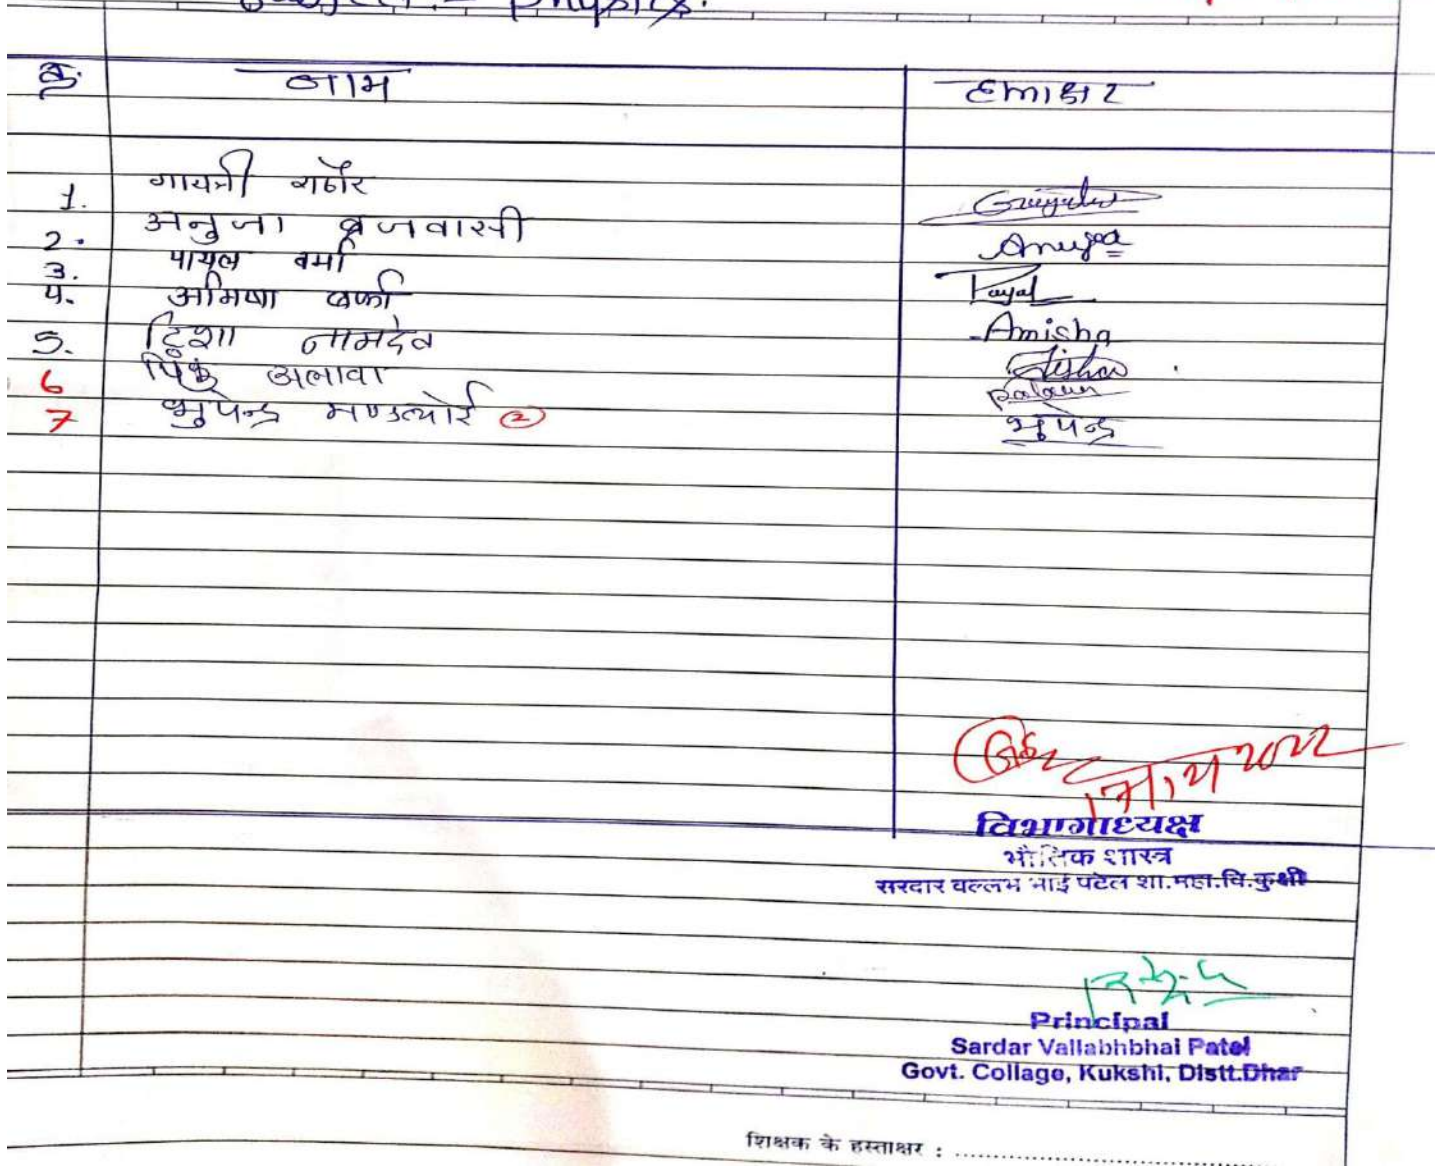 Subject - Physics.
क्र. नाम हस्ताक्षर
1. गायत्री राठौर
2. अनुजा ब्रजवासी Anuja
3. पायल वर्मा Payal
4. अमिषा Amisha
5. टिशा नामदेव Tisha
6 अलावा
7 भुपेन्द्र ② भुपेन्द्र
2022
विभागाध्यक्ष
भौतिक शास्त्र
सरदार वल्लभ भाई पटेल शा.महा.वि.कुक्षी
Principal
Sardar Vallabhbhai Patel
Govt. Collage, Kukshi, Distt.Dhar
शिक्षक के हस्ताक्षर : ........................................